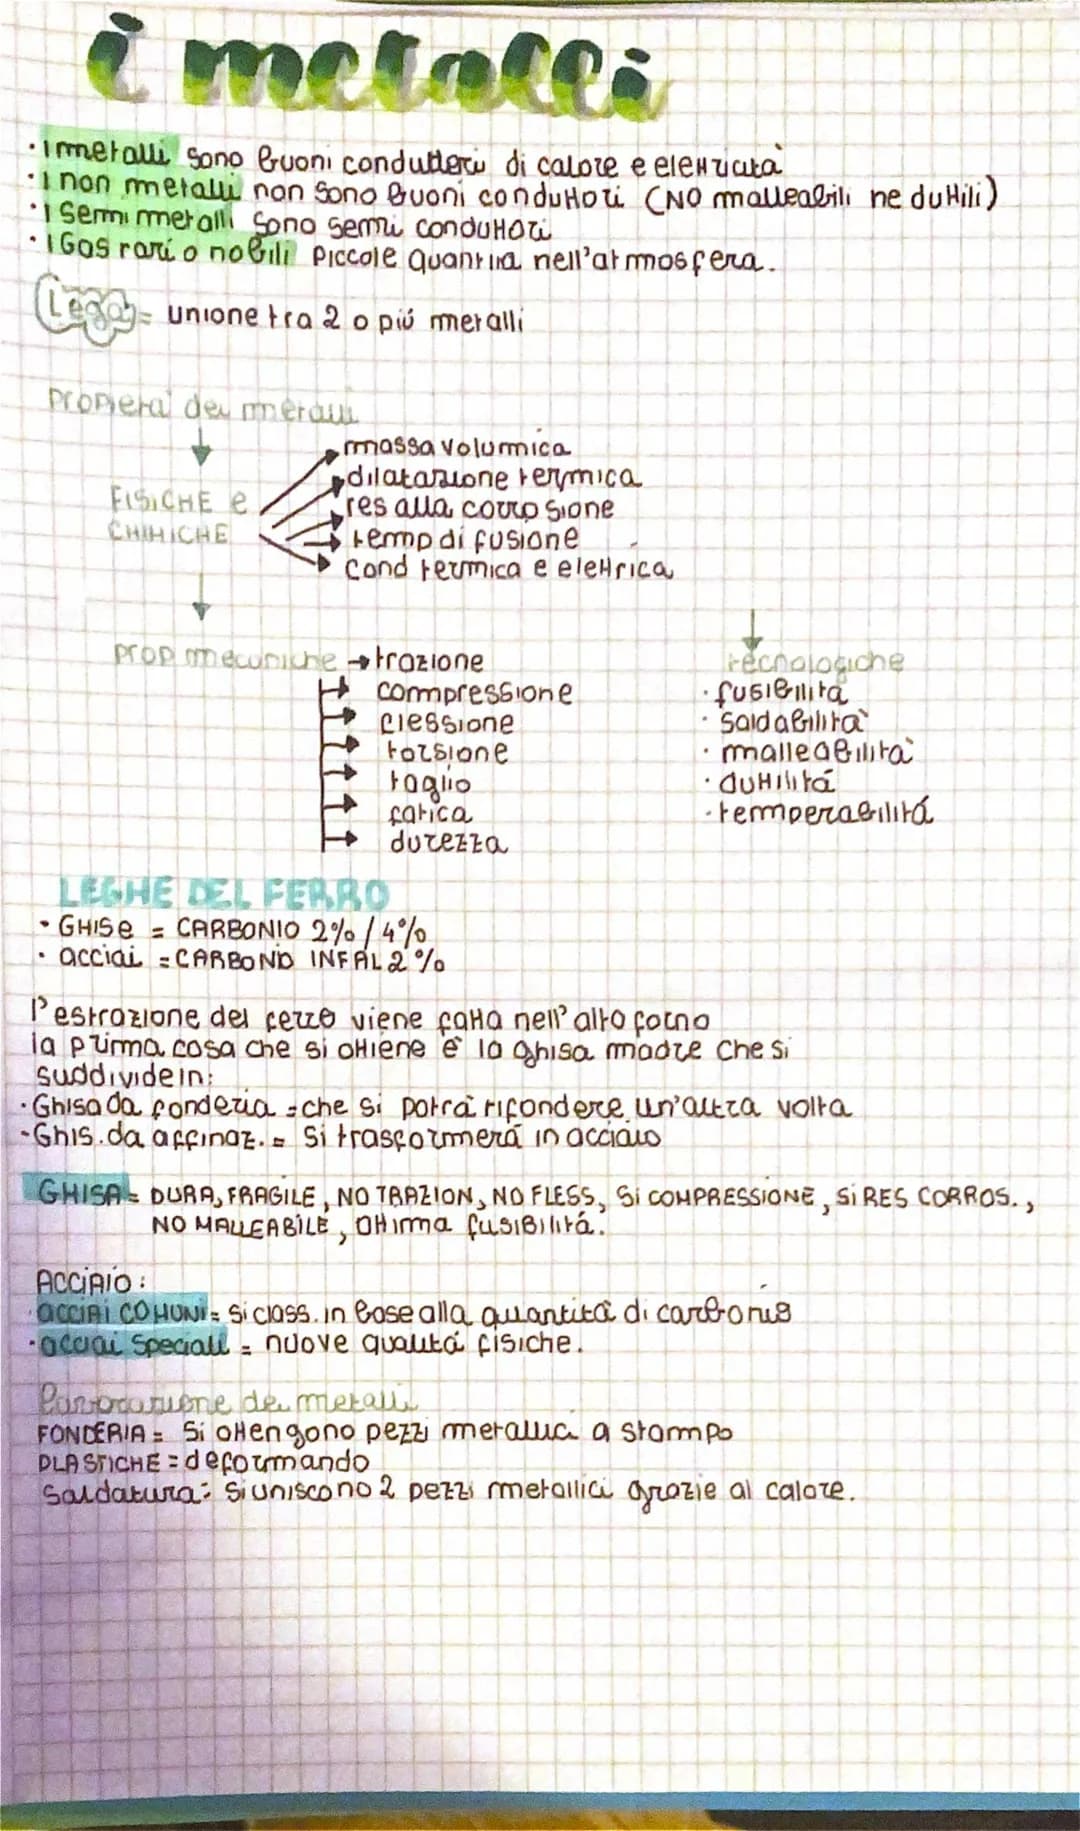 i metalli
· I metalli sono buoni conduttori di calore e elettricità
· I non metalli non sono buoni conduttori (NO malleabili ne duttili)
· I semi metalli sono semi conduttori
· I Gas rari o nobili piccole quantità nell'atmosfera.
Lega = unione tra 2 o più metalli
proprietà dei metalli
FISICHE e CHIMICHE
massa volumica
dilatazione termica
res alla corrosione
temp di fusione
cond termica e elettrica
prop meccniche → trazione
compressione
flessione
torsione
taglio
fatica
durezza
tecnologiche
· fusibilità
· saldabilità
· malleabilità
· duttilitá
· temperabilitá
LEGHE DEL FERRO
· GHISE = CARBONIO 2% / 4%
· acciai = CARBONIO INF AL 2%
l'estrazione del ferro viene fatta nell'alto forno
la prima cosa che si ottiene é la ghisa madre che si
suddivide in:
· Ghisa da fonderia = che si potrà rifondere un'altra volta
- Ghis. da affinaz. = si trasformerá in acciaio
GHISA = DURA, FRAGILE, NO TRAZION, NO FLESS, Si COMPRESSIONE, Si RES CORROS.,
NO MALLEABILE, Ottima fusibilitá.
ACCIAIO:
· ACCIAI COMUNI = si class. in base alla quantità di carbonio
· acciai speciali = nuove qualitá fisiche.
lavorazione dei metalli
FONDERIA = Si ottengono pezzi metallici a stampo
PLASTICHE = deformando
saldatura: si uniscono 2 pezzi metallici grazie al calore.